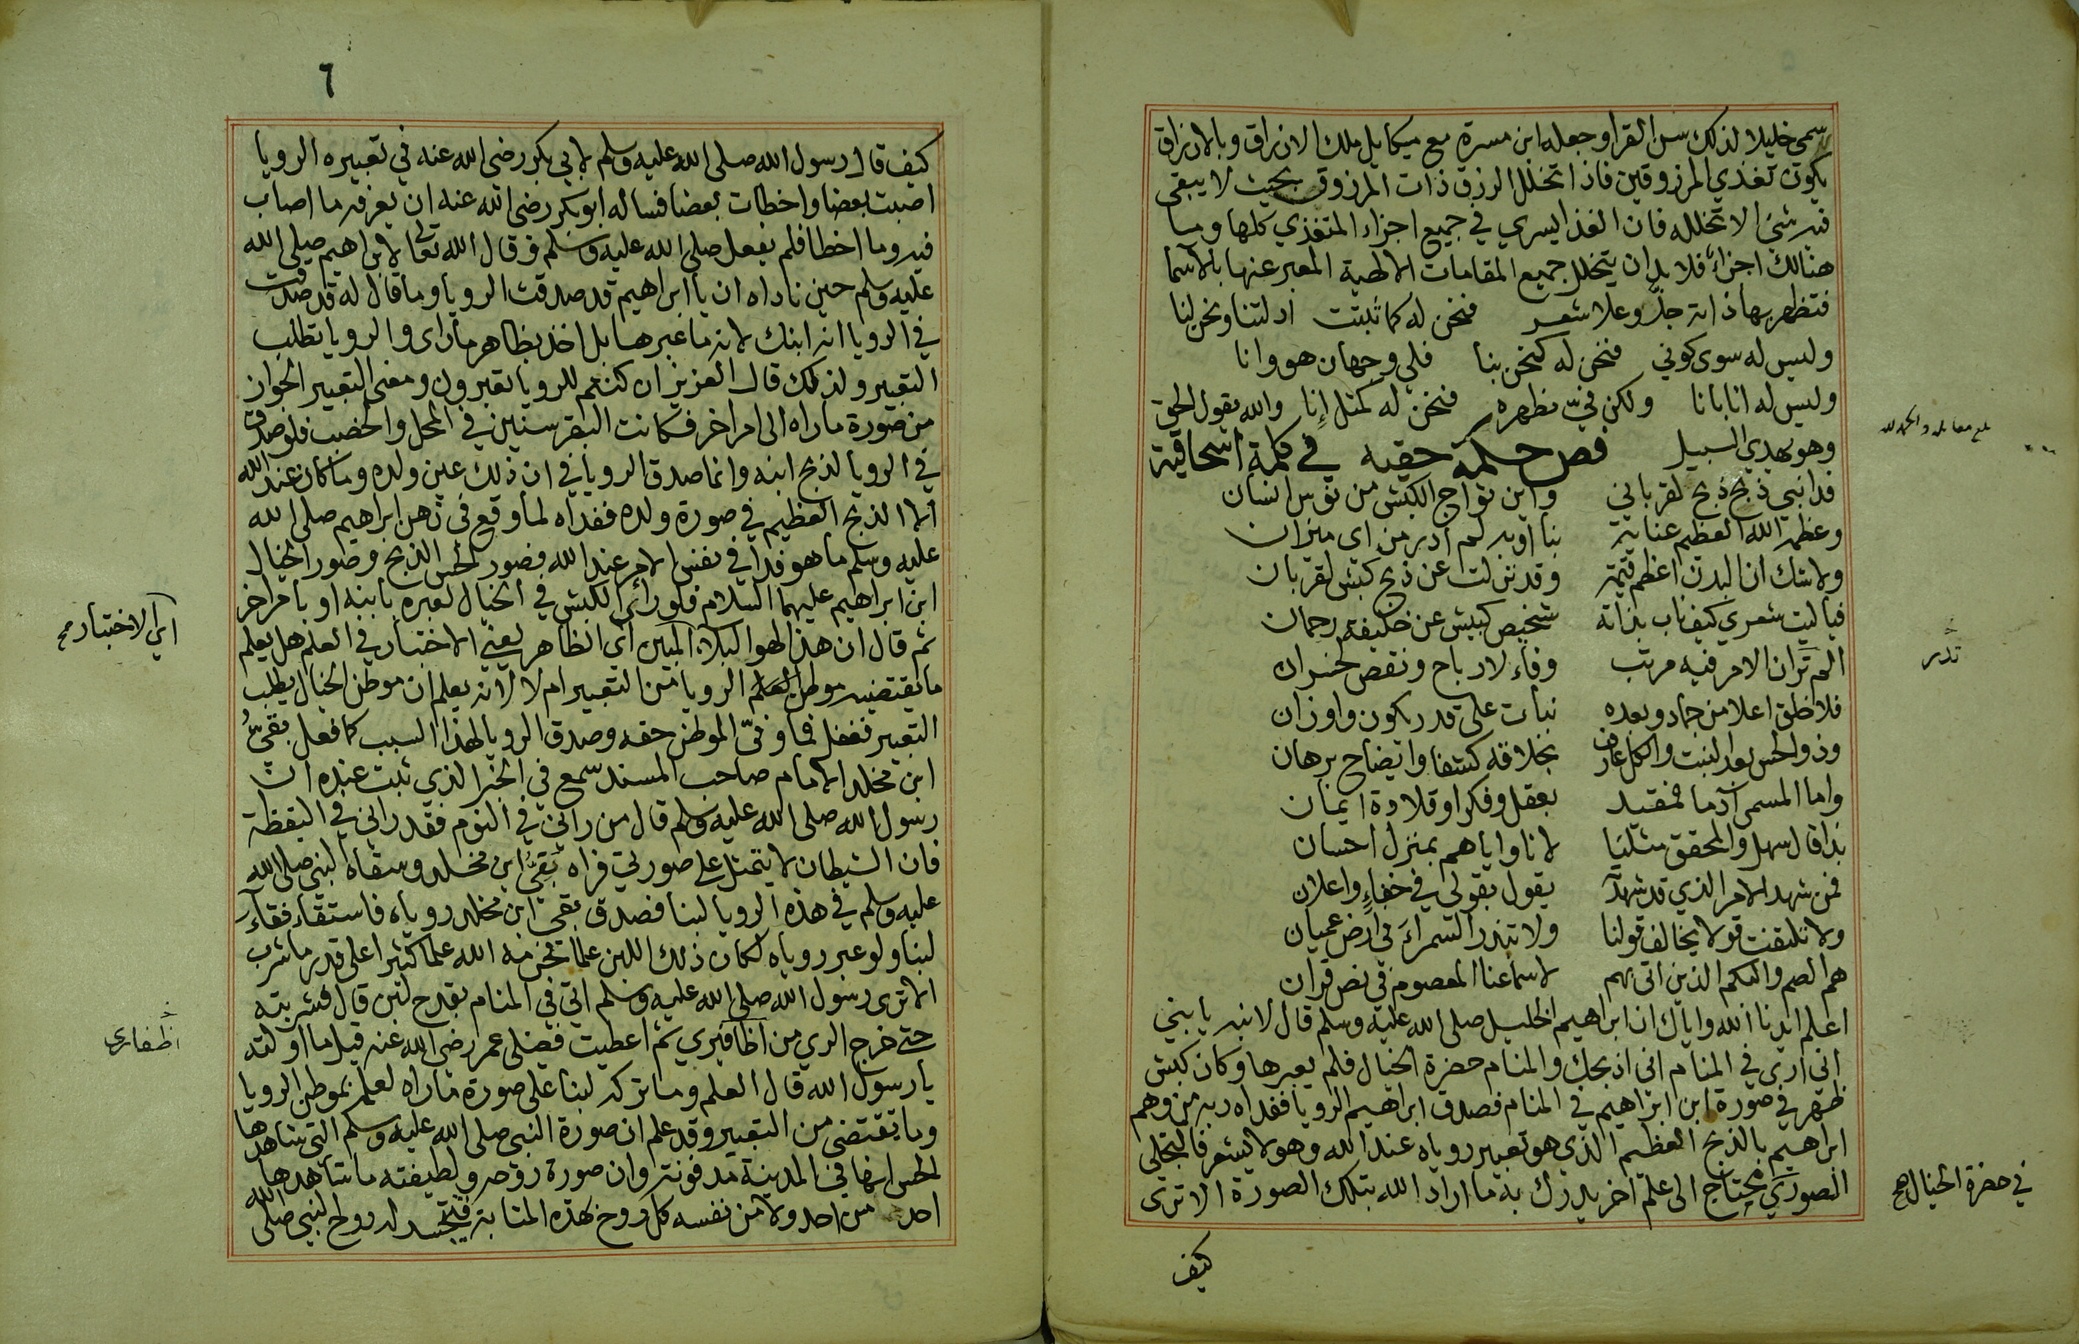 سمي خليلا لذلك سن القرا وجعله ابن مسرة مع ميكايل ملك الارزاق وبالارزاق
يكون تغذي المرزوقين فاذا تخلل الرزق ذات المرزوق بحيث لا يبقى
فيه شئ الا تخلله فان الغذا يسري في جميع اجزاء المتغذي كلها وما
هنالك اجزاء فلا بد ان يتخلل جميع المقامات الالهية المعبر عنها بالاسما
فتظهر بها ذاته جل وعلا شعر فنحن له كما ثبتت ادلتنا ونحن لنا
وليس له سوى كوني فنحن له كنحن بنا فلي وجهان هو وانا
وليس له انا بانا ولكن في مظهره فنحن له كمثل إنا والله يقول الحق
وهو يهدي السبيل فص حكمة حقيه في كلمة اسحاقية
فدا نبي ذبح ذبح لقربان واين ثواج الكبش من نوس انسان
وعظمه الله العظيم عناية بنا او به لم ادر من اي ميزان
ولا شك ان البدن اعظم قيمة وقد نزلت عن ذبح كبش لقربان
فيا ليت شعري كيف ناب بذاته شخيص كبيش عن خليفة رحمان
الم تر ان الامر فيه مرتب وفاء لارباح ونقص لخسران
فلا خلق اعلا من جماد وبعده نبات على قدر يكون واوزان
وذو الحس بعد النبت والكل عارف بخلاقه كشفا وايضاح برهان
واما المسمى آدما فمقيد بعقل وفكر او قلادة ايمان
بذا قال سهل والمحقق مثلنا لانا واياهم بمنزل احسان
فمن شهد الامر الذي قد شهدته يقول بقولي في خفاء واعلان
ولا تلتفت قولا يخالف قولنا ولا تبذر السمراء في ارض عميان
هم الصم والبكم الذين اتى بهم لاسماعنا المعصوم في نص قران
اعلم ايدنا الله واياك ان ابراهيم الخليل صلى الله عليه وسلم قال لابنه يا بني
اني ارى في المنام اني اذبحك والمنام حضرة الخيال فلم يعبرها وكان كبش
ظهر في صورة ابن ابراهيم في المنام فصدق ابراهيم الرويا ففداه ربه من وهم
ابراهيم بالذبح العظيم الذي هو تعبير روياه عند الله وهو لا يشعر فالتجلي
الصوري محتاج الى علم اخر يدرك به ما اراد الله بتلك الصورة الا ترى
كيف
بلغ مقابلة والحمد لله
تدر
في حضرة الخيال صح
٦
كيف قال رسول الله صلى الله عليه وسلم لابي بكر رضي الله عنه في تعبيره الرويا
اصبت بعضا واخطات بعضا فساله ابو بكر رضي الله عنه ان يعرفه ما اصاب
فيه وما اخطا فلم يفعل صلى الله عليه وسلم وقال الله تعالى لابراهيم صلى الله
عليه وسلم حين ناداه ان يا ابراهيم قد صدقت الرويا وما قال له قد صدقت
في الرويا انه ابنك لانه ما عبرها بل اخذ بظاهر ما راى والرويا تطلب
التعبير ولذلك قال العزيز ان كنتم للرويا تعبرون ومعنى التعبير الجواز
من صورة ما راه الى امر اخر فكانت البقر سنين في المحل والخصب فلو صدق
في الرويا لذبح ابنه وانما صدق الرويا في ان ذلك عين ولده وما كان عند الله
الا الذبح العظيم في صورة ولده ففداه لما وقع في ذهن ابراهيم صلى الله
عليه وسلم ما هو فدا في نفس الامر عند الله فصور الحس الذبح وصور الخيال
ابن ابراهيم عليهما السلام فلو رأى الكبش في الخيال لعبره بابنه او بامر اخر
ثم قال ان هذا لهو البلاء المبين اي الظاهر يعني الاختبار في العلم هل يعلم
ما يقتضيه موطن الرويا من التعبير ام لا لانه يعلم ان موطن الخيال يطلب
التعبير فغفل فما وفى الموطن حقه وصدق الرويا لهذا السبب كما فعل بقي
ابن مخلد الامام صاحب المسند سمع في الخبر الذي ثبت عنده ان
رسول الله صلى الله عليه وسلم قال من راني في النوم فقد راني في اليقظة
فان الشيطان لا يتمثل على صورتي فراه بقي ابن مخلد وسقاه النبي صلى الله
عليه وسلم في هذه الرويا لبنا فصدق بقي ابن مخلد روياه فاستقاء فقاء
لبنا ولو عبر روياه لكان ذلك اللبن علما فحرمه الله علما كثيرا على قدر ما شرب
الا ترى رسول الله صلى الله عليه وسلم اتي في المنام بقدح لبن قال فشربته
حتى خرج الري من اظافيري ثم اعطيت فضلي عمر رضي الله عنه قيل ما اولته
يا رسول الله قال العلم وما تركه لبنا على صورة ما راه لعلمه بموطن الرويا
وما تقتضي من التعبير وقد علم ان صورة النبي صلى الله عليه وسلم التي شاهدها
الحس انها في المدينة مدفونة وان صورة روحه ولطيفته ما شاهدها
احد من احد ولا من نفسه كل روح بهذه المثابة فتتجسد له روح النبي صلى الله
اي الاختبار صح
اظفاري